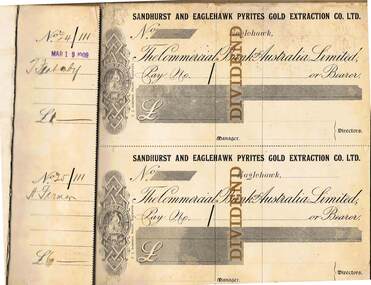 No. 74/111
MAR 19 1909
£
SANDHURST AND EAGLEHAWK PYRITES GOLD EXTRACTION CO. LTD.
No. Eaglehawk,
The Commercial Bank of Australia Limited,
Pay No. / or Bearer.
DIVIDEND
£
Manager.
Directors.
No. 75/111
£
SANDHURST AND EAGLEHAWK PYRITES GOLD EXTRACTION CO. LTD.
No. Eaglehawk,
The Commercial Bank of Australia Limited,
Pay No. / or Bearer.
DIVIDEND
£
Manager.
Directors.